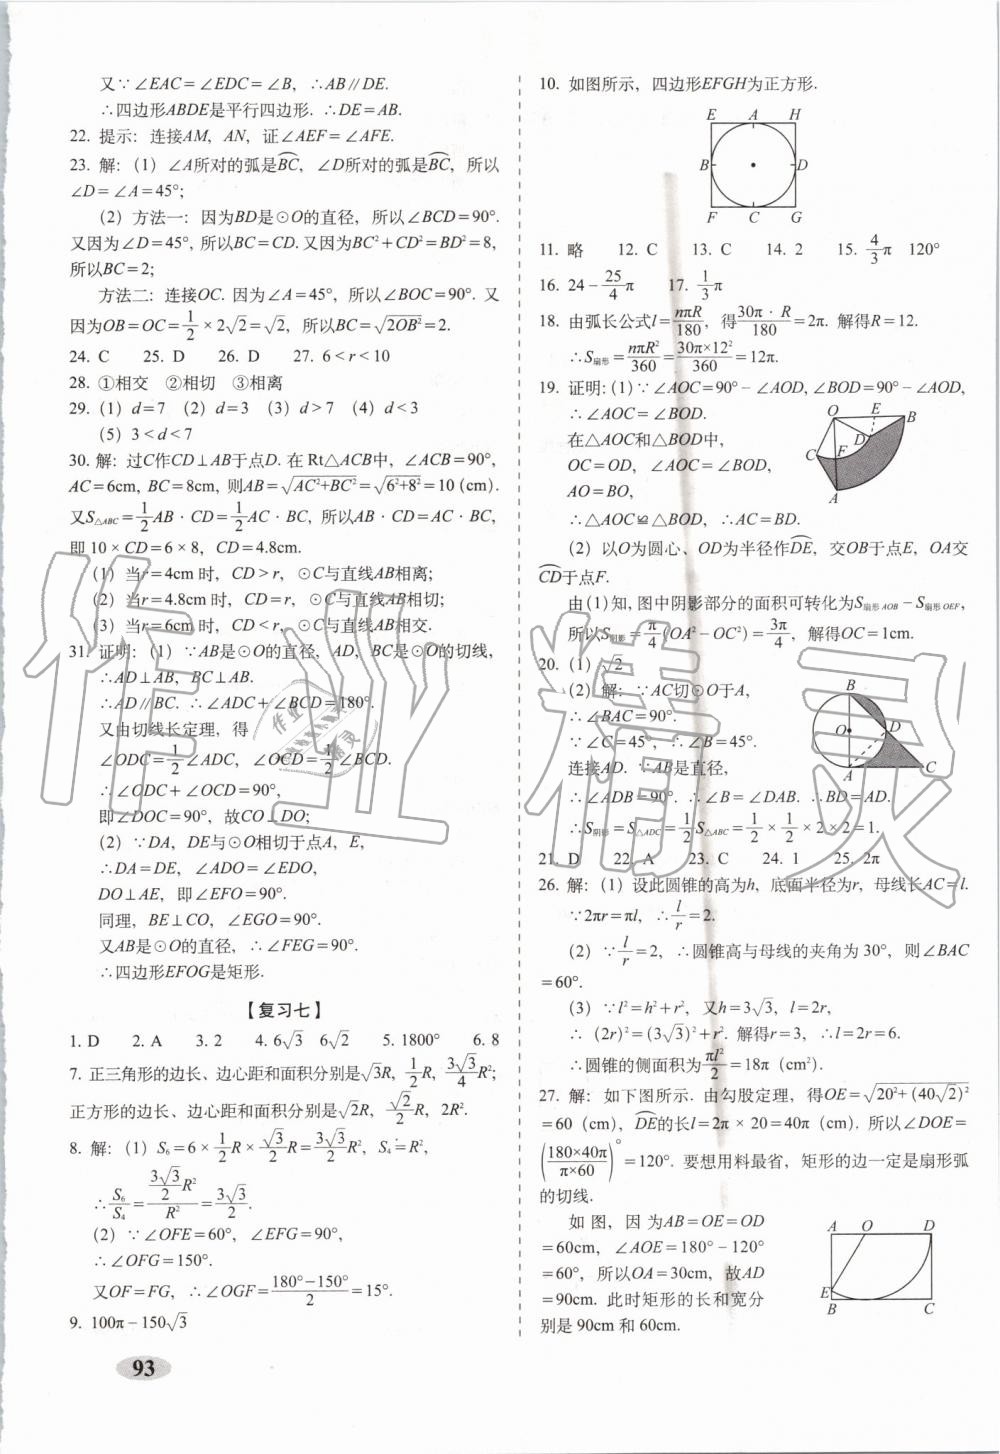 又∵∠EAC=∠EDC=∠B, ∴AB∥DE.
∴四边形ABDE是平行四边形. ∴DE=AB.
22. 提示：连接AM，AN，证∠AEF=∠AFE.
23. 解：(1) ∠A所对的弧是BC，∠D所对的弧是BC，所以
∠D=∠A=45°;
(2) 方法一：因为BD是⊙O的直径，所以∠BCD=90°.
又因为∠D=45°, 所以BC=CD. 又因为BC²+CD²=BD²=8,
所以BC=2;
方法二：连接OC. 因为∠A=45°，所以∠BOC=90°. 又
因为OB=OC=1/2×2√2=√2，所以BC=√(2OB²)=2.
24. C 25. D 26. D 27. 6<r<10
28. ①相交 ②相切 ③相离
29. (1) d=7 (2) d=3 (3) d>7 (4) d<3
(5) 3<d<7
30. 解：过C作CD⊥AB于点D. 在Rt△ACB中，∠ACB=90°,
AC=6cm, BC=8cm, 则AB=√(AC²+BC²)=√(6²+8²)=10 (cm).
又S△ABC=1/2AB·CD=1/2AC·BC, 所以AB·CD=AC·BC,
即10×CD=6×8，CD=4.8cm.
(1) 当r=4cm时，CD>r，⊙C与直线AB相离;
(2) 当r=4.8cm时，CD=r，⊙C与直线AB相切;
(3) 当r=6cm时，CD<r，⊙C与直线AB相交.
31. 证明：(1) ∵AB是⊙O的直径，AD，BC是⊙O的切线，
∴AD⊥AB，BC⊥AB.
∴AD∥BC. ∴∠ADC+∠BCD=180°.
又由切线长定理，得
∠ODC=1/2∠ADC，∠OCD=1/2∠BCD.
∴∠ODC+∠OCD=90°,
即∠DOC=90°，故CO⊥DO;
(2) ∵DA，DE与⊙O相切于点A，E,
∴DA=DE，∠ADO=∠EDO,
DO⊥AE，即∠EFO=90°.
同理，BE⊥CO，∠EGO=90°.
又AB是⊙O的直径，∴∠FEG=90°.
∴四边形EFOG是矩形.
【复习七】
1. D 2. A 3. 2 4. 6√3 6√2 5. 1800° 6. 8
7. 正三角形的边长、边心距和面积分别是√3R, 1/2R, 3√3/4R²;
正方形的边长、边心距和面积分别是√2R，√2/2R，2R².
8. 解：(1) S₆=6×1/2R×√3/2R=3√3/2R²，S₄=R²,
∴S₆/S₄=(3√3/2R²)/R²=3√3/2.
(2) ∵∠OFE=60°，∠EFG=90°,
∴∠OFG=150°.
又OF=FG，∴∠OGF=(180°−150°)/2=15°.
9. 100π−150√3
93
10. 如图所示，四边形EFGH为正方形.
E A H
B D
F C G
11. 略 12. C 13. C 14. 2 15. 4/3π 120°
16. 24−25/4π 17. 1/3π
18. 由弧长公式l=nπR/180，得30π·R/180=2π. 解得R=12.
∴S扇形=nπR²/360=30π×12²/360=12π.
19. 证明：(1) ∵∠AOC=90°−∠AOD, ∠BOD=90°−∠AOD,
∴∠AOC=∠BOD.
在△AOC和△BOD中,
OC=OD，∠AOC=∠BOD,
AO=BO,
∴△AOC≌△BOD，∴AC=BD.
O E B
D
C F
A
(2) 以O为圆心、OD为半径作DE，交OB于点E，OA交
CD于点F.
由(1)知, 图中阴影部分的面积可转化为S扇形AOB−S扇形OEF,
所以S阴影=π/4(OA²−OC²)=3π/4，解得OC=1cm.
20. (1) √2
(2) 解：∵AC切⊙O于A,
∴∠BAC=90°.
∵∠C=45°，∴∠B=45°.
连接AD. ∵AB是直径,
∴∠ADB=90°. ∴∠B=∠DAB. ∴BD=AD.
∴S阴影=S△ADC=1/2S△ABC=1/2×1/2×2×2=1.
B
O D
A C
21. D 22. A 23. C 24. 1 25. 2π
26. 解：(1) 设此圆锥的高为h，底面半径为r，母线长AC=l.
∵2πr=πl，∴l/r=2.
(2) ∵l/r=2，∴圆锥高与母线的夹角为30°，则∠BAC
=60°.
(3) ∵l²=h²+r²，又h=3√3，l=2r,
∴ (2r)²=(3√3)²+r². 解得r=3，∴l=2r=6.
∴圆锥的侧面积为πl²/2=18π (cm²).
27. 解：如下图所示. 由勾股定理，得OE=√(20²+(40√2)²)
=60 (cm), DE的长l=2π×20=40π (cm). 所以∠DOE=
(180×40π/π×60)°=120°. 要想用料最省，矩形的边一定是扇形弧
的切线.
如图，因为AB=OE=OD
=60cm，∠AOE=180°−120°
=60°，所以OA=30cm，故AD
=90cm. 此时矩形的长和宽分
别是90cm和60cm.
A O D
E
B C
作业精灵
作业
精灵